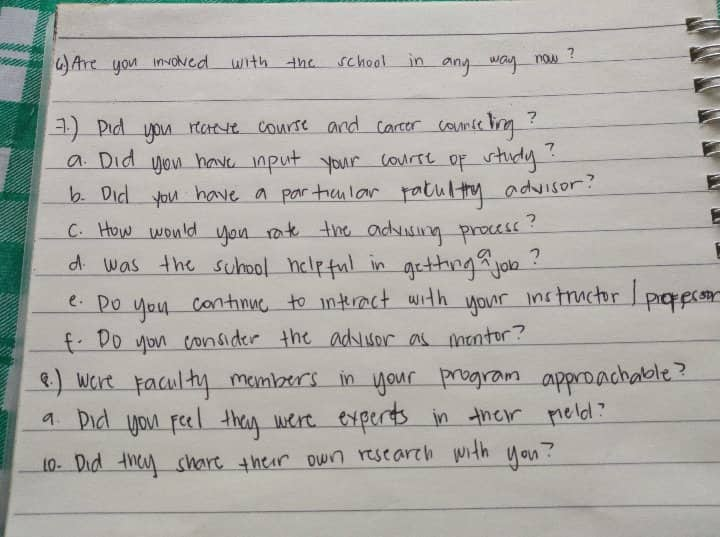 6) Are you involved with the school in any way now ?
7.) Did you recieve course and career counseling ?
a. Did you have input your course of study ?
b. Did you have a particular facultty advisor?
c. How would you rate the advising process ?
d. Was the school helpful in getting a job ?
e. Do you continue to interact with your instructor / professor
f. Do you consider the advisor as mentor?
8.) Were faculty members in your program approachable ?
9. Did you feel they were experts in their field?
10. Did they share their own research with you?